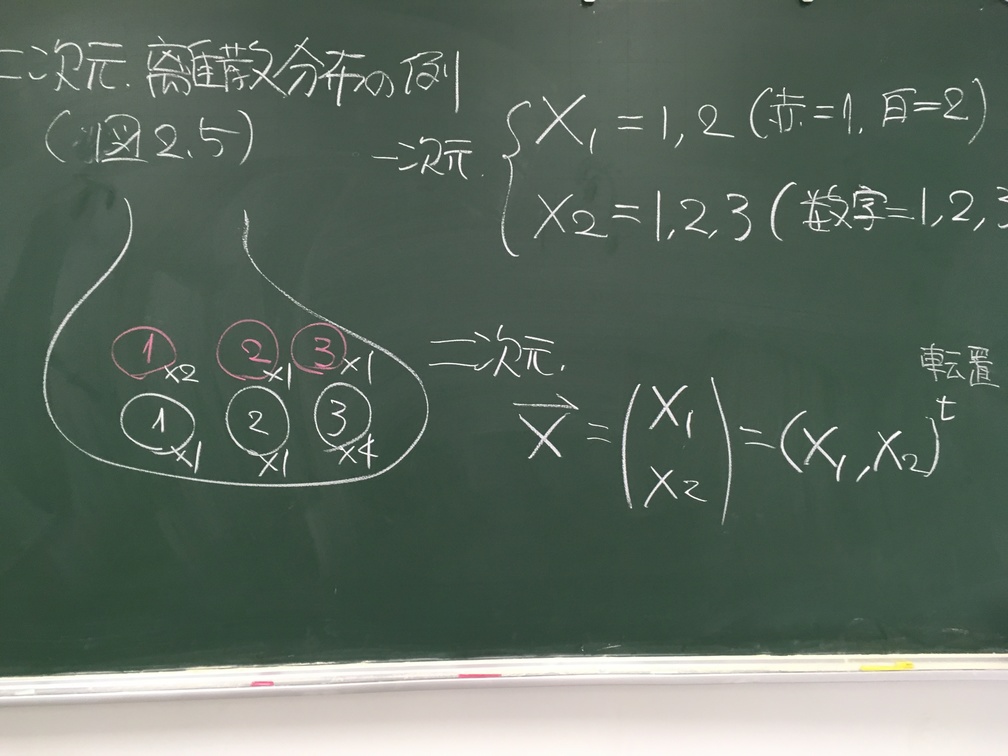 二次元離散分布の例
(図2.5)
一次元
X₁ = 1, 2 (赤=1, 白=2)
X₂ = 1, 2, 3 (数字=1, 2, 3
① ×2 ② ×1 ③ ×1
① ×1 ② ×1 ③ ×4
二次元.
転置
X⃗ = (X₁ X₂) = (X₁, X₂)ᵗ